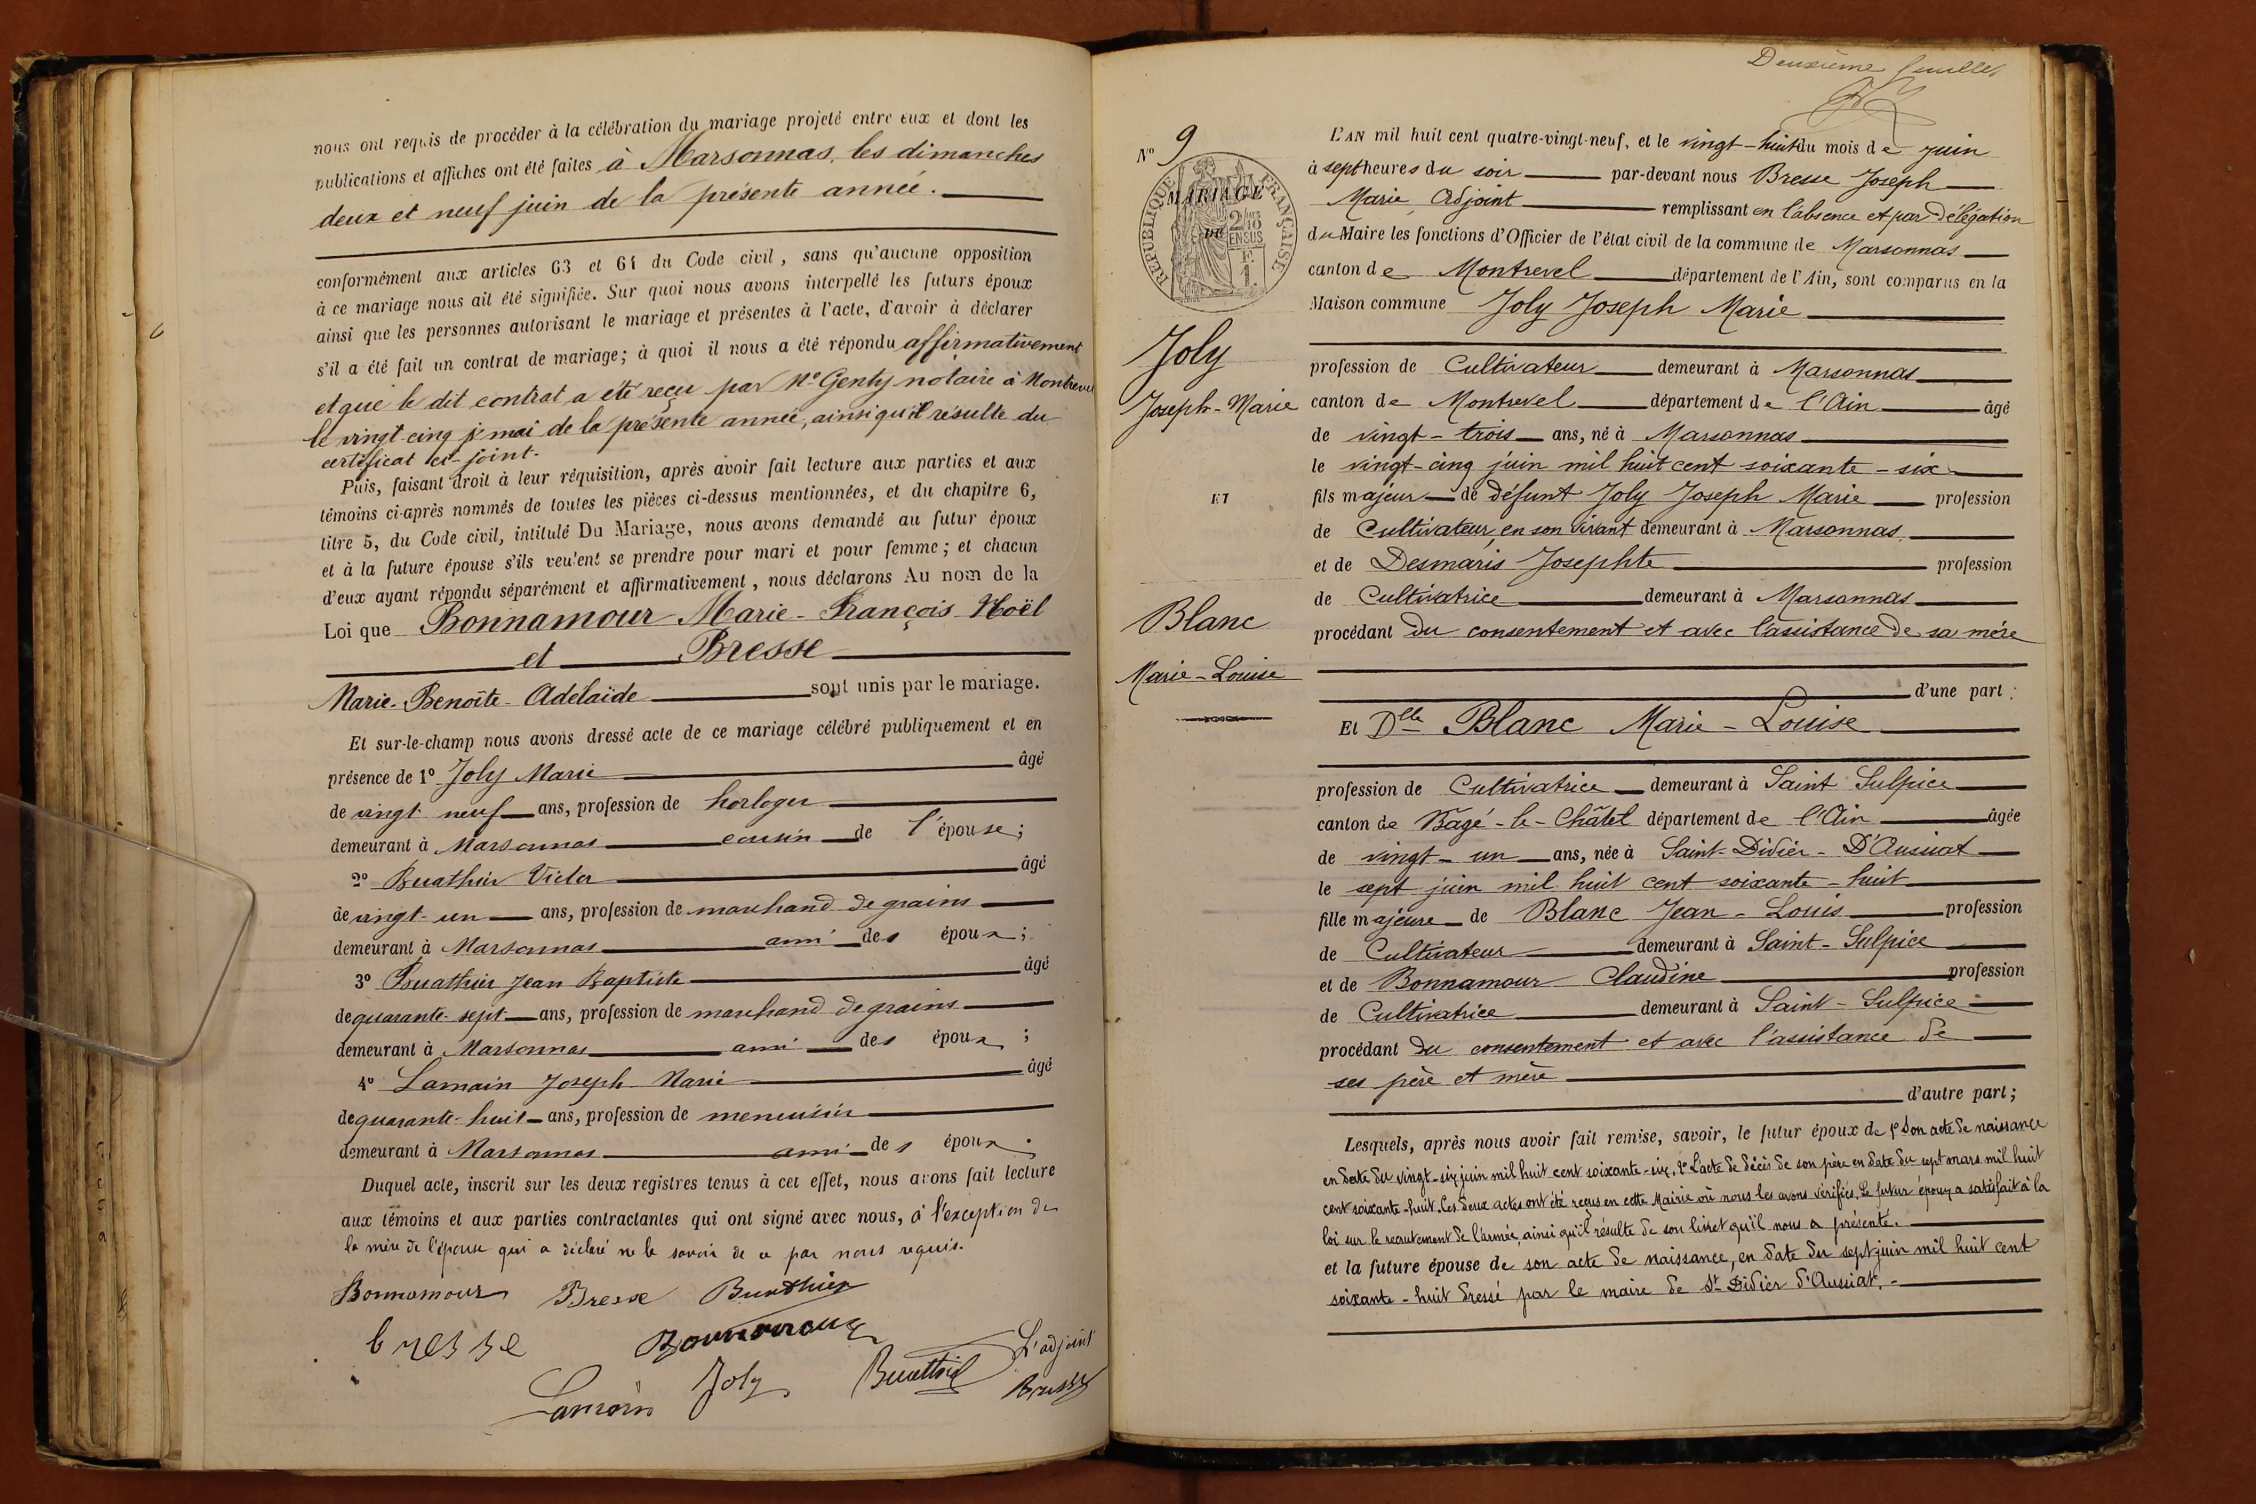 nous ont requis de procéder à la célébration du mariage projeté entre eux et dont les
publications et affiches ont été faites à Marsonnas, les dimanches
deux et neuf juin de la présente année.
conformément aux articles 63 et 64 du Code civil, sans qu'aucune opposition
à ce mariage nous ait été signifiée. Sur quoi nous avons interpellé les futurs époux
ainsi que les personnes autorisant le mariage et présentes à l'acte, d'avoir à déclarer
s'il a été fait un contrat de mariage; à quoi il nous a été répondu affirmativement
et que le dit contrat a été reçu par Me Genty notaire à Montrevel
le vingt-cinq mai de la présente année, ainsi qu'il résulte du
certificat ci-joint.
Puis, faisant droit à leur réquisition, après avoir fait lecture aux parties et aux
témoins ci-après nommés de toutes les pièces ci-dessus mentionnées, et du chapitre 6,
titre 5, du Code civil, intitulé Du Mariage, nous avons demandé au futur époux
et à la future épouse s'ils veulent se prendre pour mari et pour femme; et chacun
d'eux ayant répondu séparément et affirmativement, nous déclarons Au nom de la
Loi que Bonnamour Marie-François-Noël
et Bresse
Marie-Benoîte-Adélaïde sont unis par le mariage.
Et sur-le-champ nous avons dressé acte de ce mariage célébré publiquement et en
présence de 1° Joly Marie âgé
de vingt neuf ans, profession de horloger
demeurant à Marsonnas cousin de l'épouse;
2° Buathier Victor âgé
de vingt-un ans, profession de marchand de grains
demeurant à Marsonnas ami des époux;
3° Buathier Jean Baptiste âgé
de quarante-sept ans, profession de marchand de grains
demeurant à Marsonnas ami des époux;
4° Lamain Joseph Marie âgé
de quarante-huit ans, profession de menuisier
demeurant à Marsonnas ami des époux.
Duquel acte, inscrit sur les deux registres tenus à cet effet, nous avons fait lecture
aux témoins et aux parties contractantes qui ont signé avec nous, à l'exception de
la mère de l'épouse qui a déclaré ne le savoir de ce par nous requis.
Bonnamour Bresse Buathier
bresse Bonnamour L'adjoint
Lamain Joly Buathier Bresse
Deuxième feuillet
N° 9
RÉPUBLIQUE FRANÇAISE
MARIAGE
Joly
Joseph-Marie
ET
Blanc
Marie-Louise
L'AN mil huit cent quatre-vingt-neuf, et le vingt-huit du mois de juin
à sept heures du soir par-devant nous Bresse Joseph
Marie, Adjoint remplissant en l'absence et par délégation
du Maire les fonctions d'Officier de l'état civil de la commune de Marsonnas
canton de Montrevel département de l'Ain, sont comparus en la
Maison commune Joly Joseph Marie
profession de Cultivateur demeurant à Marsonnas
canton de Montrevel département de l'Ain âgé
de vingt-trois ans, né à Marsonnas
le vingt-cinq juin mil huit cent soixante-six
fils majeur de défunt Joly Joseph Marie profession
de Cultivateur, en son vivant demeurant à Marsonnas
et de Desmaris Josephte profession
de Cultivatrice demeurant à Marsonnas
procédant du consentement et avec l'assistance de sa mère
d'une part;
Et Dlle Blanc Marie-Louise
profession de Cultivatrice demeurant à Saint Sulpice
canton de Bagé-le-Châtel département de l'Ain âgée
de vingt-un ans, née à Saint-Didier-D'Aussiat
le sept juin mil huit cent soixante-huit
fille majeure de Blanc Jean-Louis profession
de Cultivateur demeurant à Saint-Sulpice
et de Bonnamour Claudine profession
de Cultivatrice demeurant à Saint-Sulpice
procédant du consentement et avec l'assistance de
ses père et mère
d'autre part;
Lesquels, après nous avoir fait remise, savoir, le futur époux de 1° Son acte de naissance
en date du vingt-six juin mil huit cent soixante-six, 2° L'acte de décès de son père en date du sept mars mil huit
cent soixante-huit. Ces deux actes ont été reçus en cette Mairie où nous les avons vérifiés. Le futur époux a satisfait à la
loi sur le recrutement de l'armée, ainsi qu'il résulte de son livret qu'il nous a présenté.
et la future épouse de son acte de naissance, en date du sept juin mil huit cent
soixante-huit dressé par le maire de St Didier d'Aussiat.